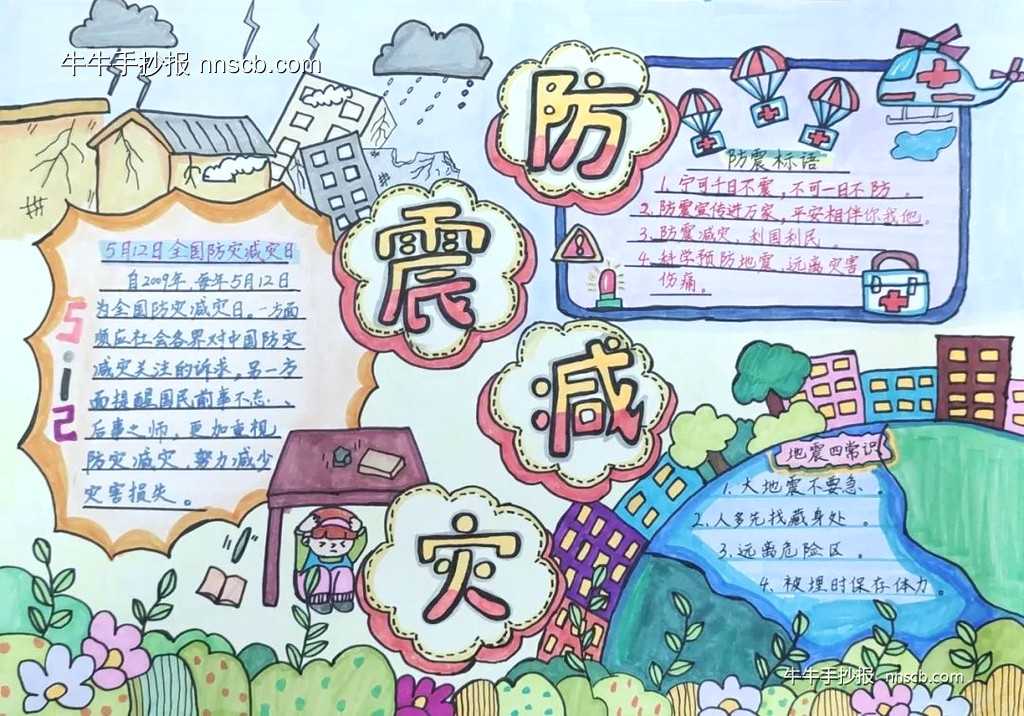 牛牛手抄报 nnscb.com
防震减灾
5月12日全国防灾减灾日
自2009年,每年5月12日
为全国防灾减灾日。一方面
顺应社会各界对中国防灾
减灾关注的诉求,另一方
面提醒国民前事不忘、
后事之师,更加重视
防灾减灾,努力减少
灾害损失。
512
防震标语
1、宁可千日不震,不可一日不防。
2、防震宣传进万家,平安相伴你我他。
3、防震减灾、利国利民。
4、科学预防地震、远离灾害
伤痛。
地震四常识
1、大地震不要急。
2、人多先找藏身处。
3、远离危险区。
4、被埋时保存体力。
牛牛手抄报 nnscb.com